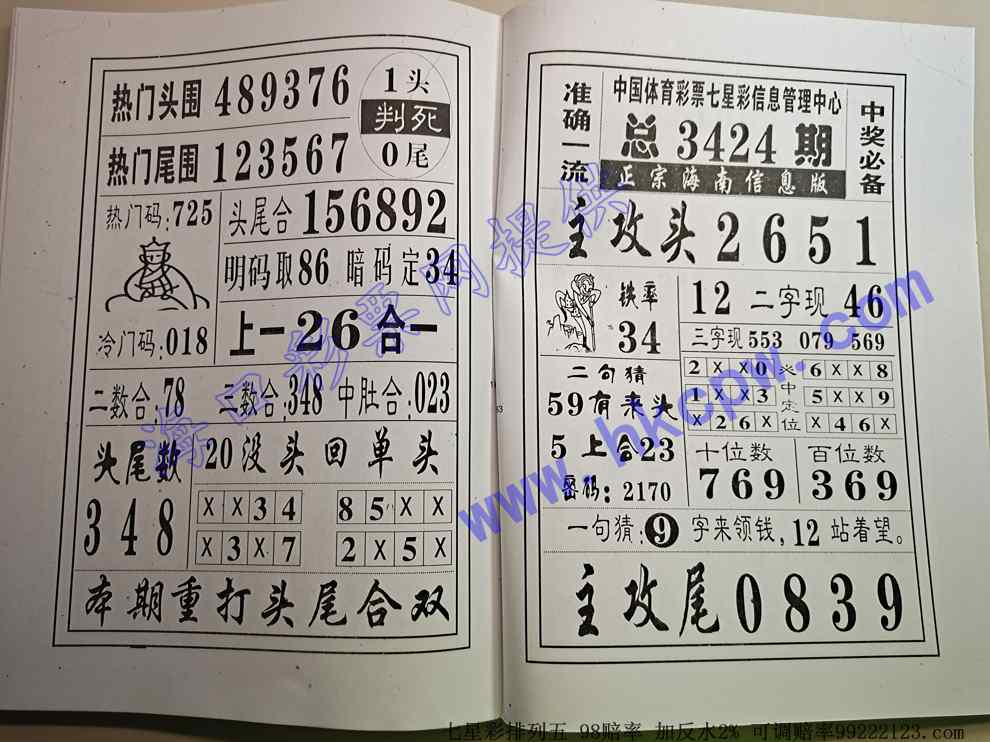 热门头围 489376
1头
判死
0尾
热门尾围 123567
热门码:725
头尾合 156892
明码取86 暗码定34
冷门码:018
上一26合一
二数合:78 三数合:348 中肚合:023
头尾数
348
20没头回单头
X X 3 4
8 5 X X
X 3 X 7
2 X 5 X
本期重打头尾合双
准确一流
中国体育彩票七星彩信息管理中心
总3424期
正宗海南信息版
中奖必备
主攻头2651
铁率
34
12 二字现 46
三字现 553 079 569
二句猜
59有来头
5上合23
密码:2170
2 X X 0
1 X X 3
X 2 6 X
中定位
6 X X 8
5 X X 9
X 4 6 X
十位数
769
百位数
369
一句猜:9字来领钱,12站着望。
主攻尾0839
海口彩票网提供
www.hkcpw.com
七星彩排列五 98赔率 加反水2% 可调赔率99222123.com